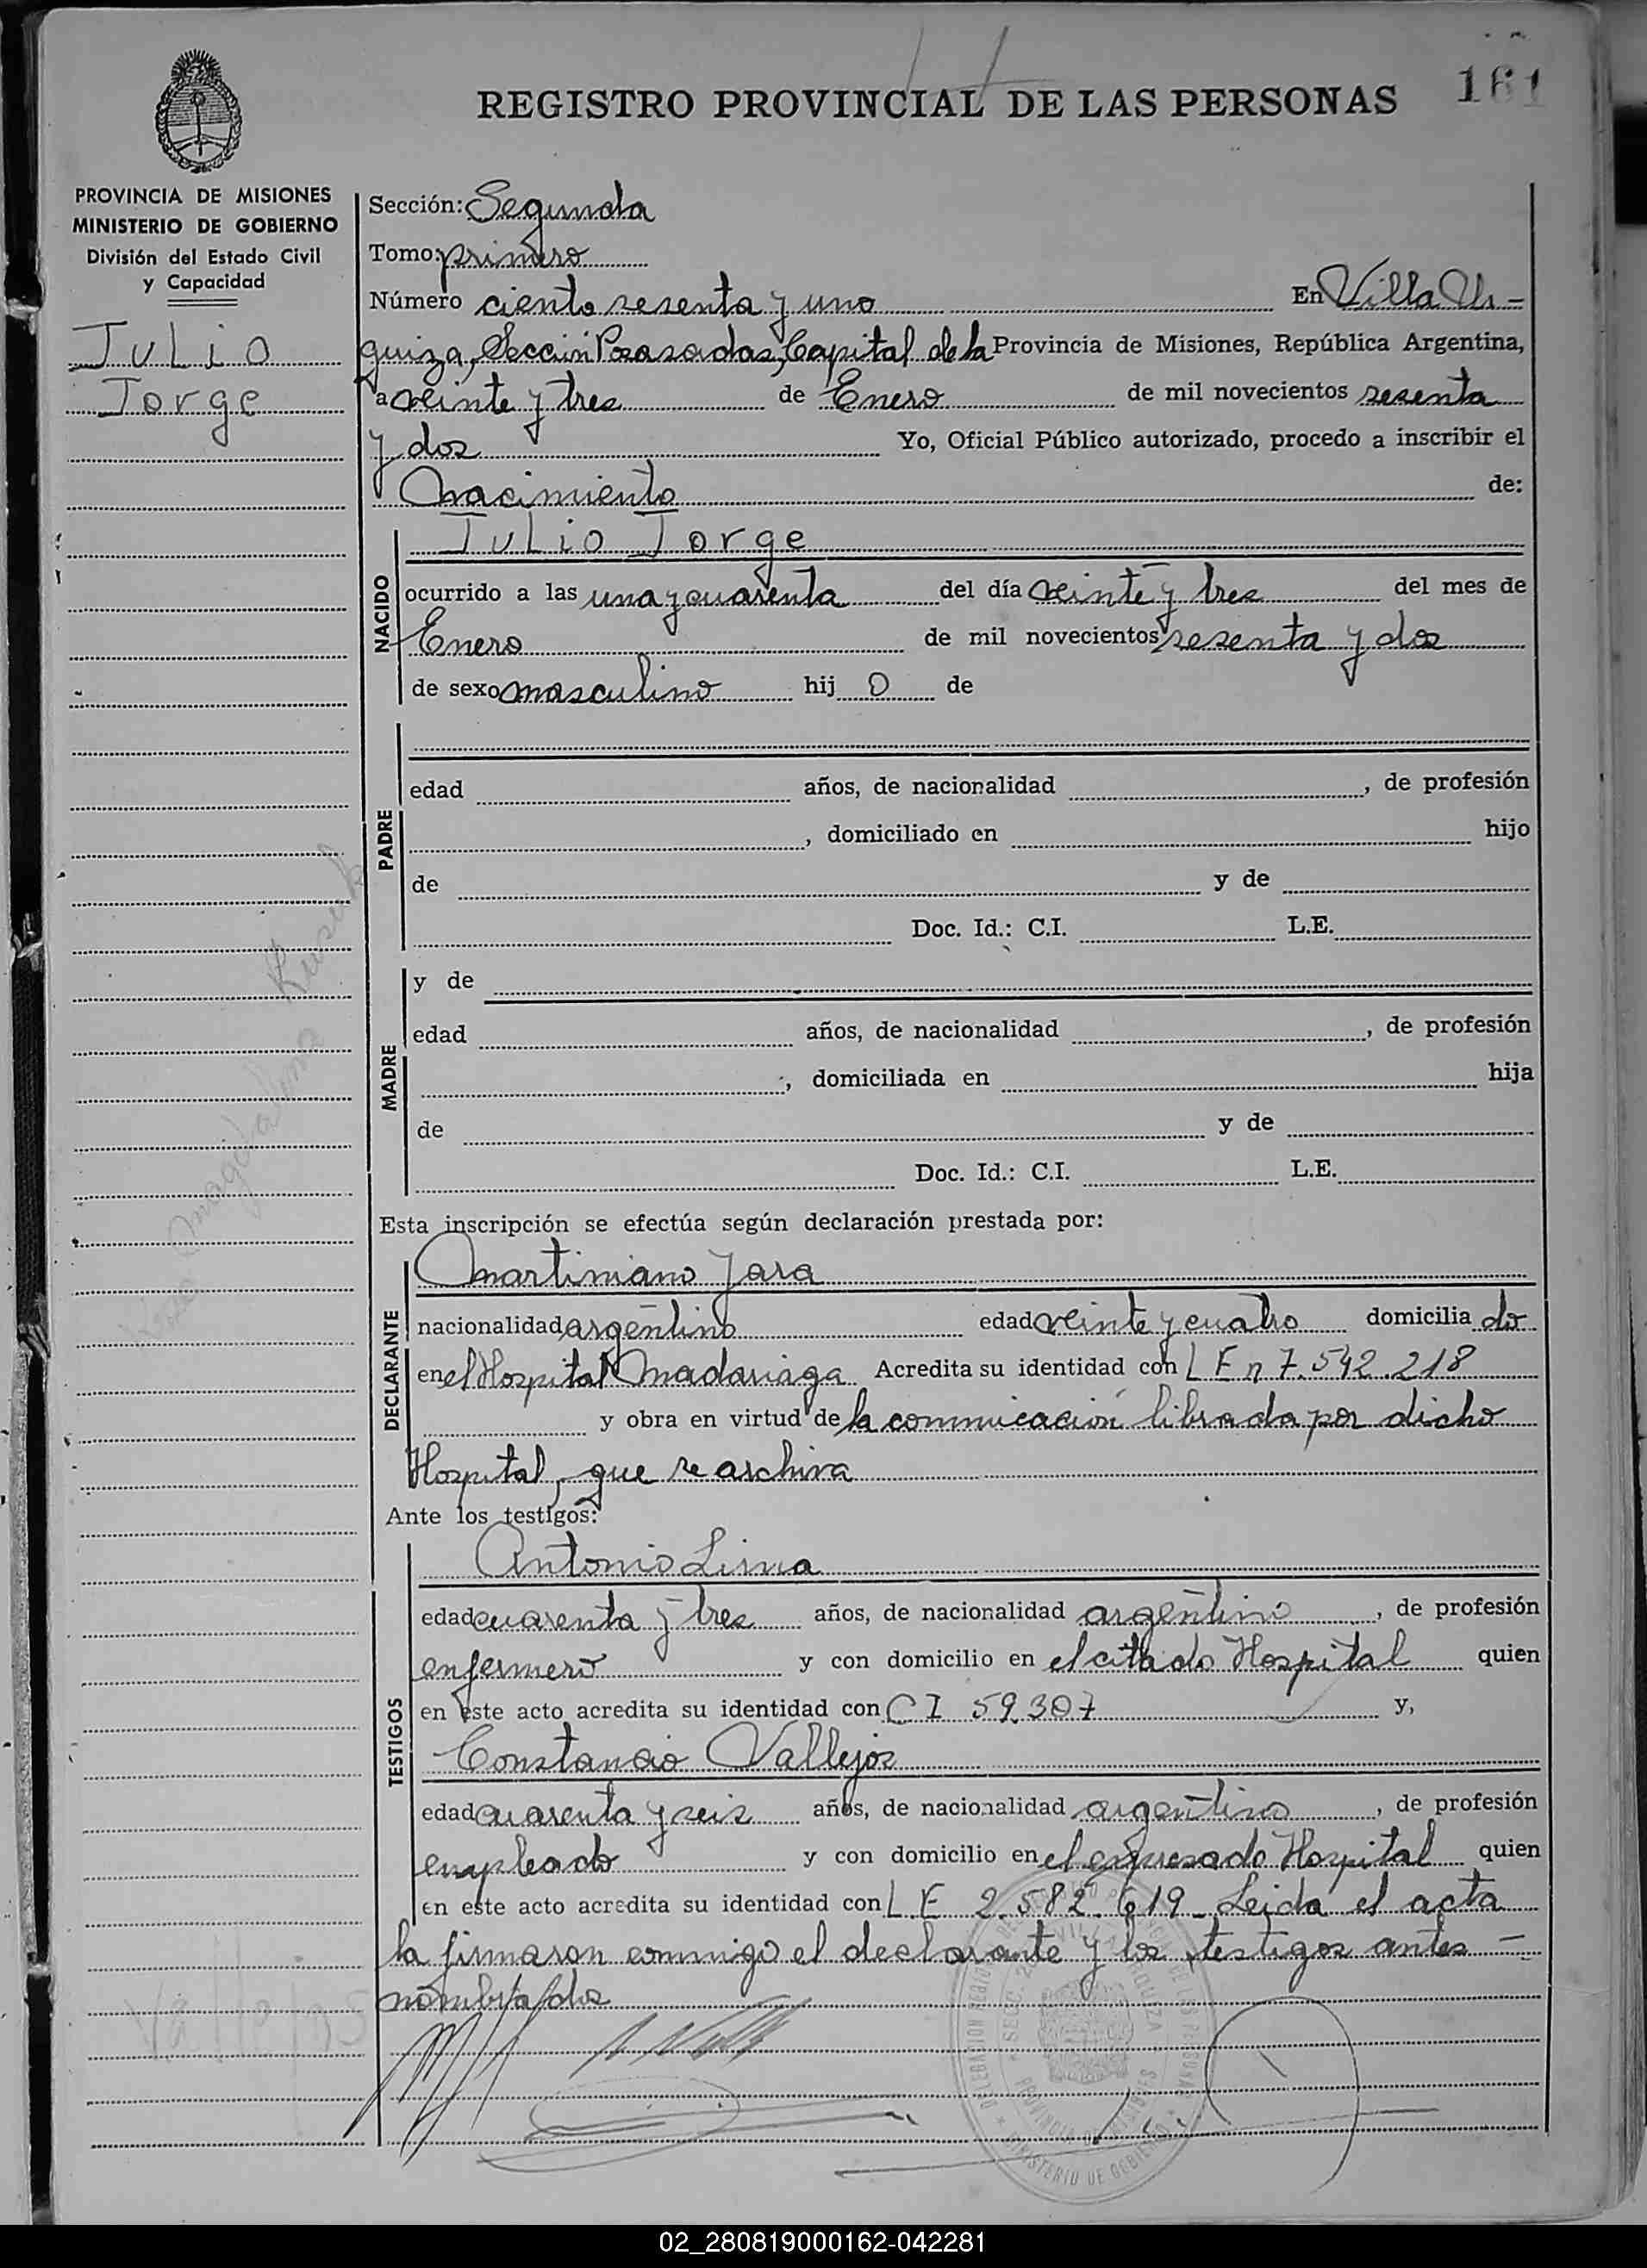 REGISTRO PROVINCIAL DE LAS PERSONAS
161
PROVINCIA DE MISIONES
MINISTERIO DE GOBIERNO
División del Estado Civil
y Capacidad
Julio
Jorge
Sección: Segunda
Tomo: primero
Número ciento sesenta y uno En Villa Ur-
quiza, Sección Posadas, Capital de la Provincia de Misiones, República Argentina,
a veinte y tres de Enero de mil novecientos sesenta
y dos Yo, Oficial Público autorizado, procedo a inscribir el
Nacimiento de:
NACIDO
Julio Jorge
ocurrido a las una y cuarenta del día veinte y tres del mes de
Enero de mil novecientos sesenta y dos
de sexo masculino hij o de
PADRE
edad años, de nacionalidad , de profesión
, domiciliado en hijo
de y de
Doc. Id.: C.I. L.E.
MADRE
y de
edad años, de nacionalidad , de profesión
, domiciliada en hija
de y de
Doc. Id.: C.I. L.E.
Magdalena
Esta inscripción se efectúa según declaración prestada por:
DECLARANTE
Martiniano Jara
nacionalidad argentino edad veinte y cuatro domicilia do
en el Hospital Madariaga Acredita su identidad con L E n 7.542.218
y obra en virtud de la comunicación librada por dicho
Hospital, que se archiva
Ante los testigos:
TESTIGOS
Antonio Lima
edad cuarenta y tres años, de nacionalidad argentino , de profesión
enfermero y con domicilio en el citado Hospital quien
en este acto acredita su identidad con C I 59.307 y,
Constancio Vallejos
edad cuarenta y seis años, de nacionalidad argentino , de profesión
empleado y con domicilio en el expresado Hospital quien
en este acto acredita su identidad con L E 2.582.619 - Leida el acta
la firmaron conmigo el declarante y los testigos antes -
nombrados
02_280819000162-042281